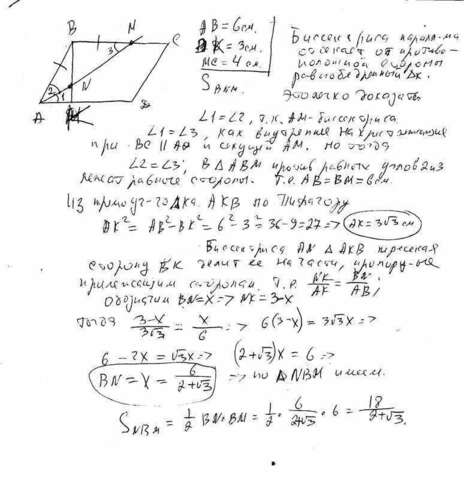 B M C
3
N
2
1
A К D
AB = 6см.
BK = 3см.
MC = 4 см.
S
Биссектриса
отсекает от противо-
положной стороны
равнобедренный Δк.
Это легко доказать
∠1=∠2, т.к. AM-биссектриса
∠1=∠3, как внутренние накрест лежащие
при BC || AD и секущей AM. Но тогда
∠2=∠3; В ΔABM против равных углов 2 и 3
лежат равные стороны. Т.е. AB=BM=6см.
Из прямоуг-го Δка AKB по Пифагору
AK² = AB²-BK² = 6²-3²=36-9=27 => AK=3√3 см
Биссектриса AN ΔAKB пересекая
сторону BK делит ее на части, пропорц-ые
прилежащим сторонам. Т.е. NK/AK = BN/AB;
Обозначим BN=x => NK=3-x
тогда (3-x)/(3√3) = x/6 => 6(3-x) = 3√3x =>
6-2x = √3x => (2+√3)x = 6 =>
BN = x = 6/(2+√3) => по ΔNBM имеем.
S NBM = 1/2 BN·BM = 1/2 · 6/(2+√3) · 6 = 18/(2+√3).